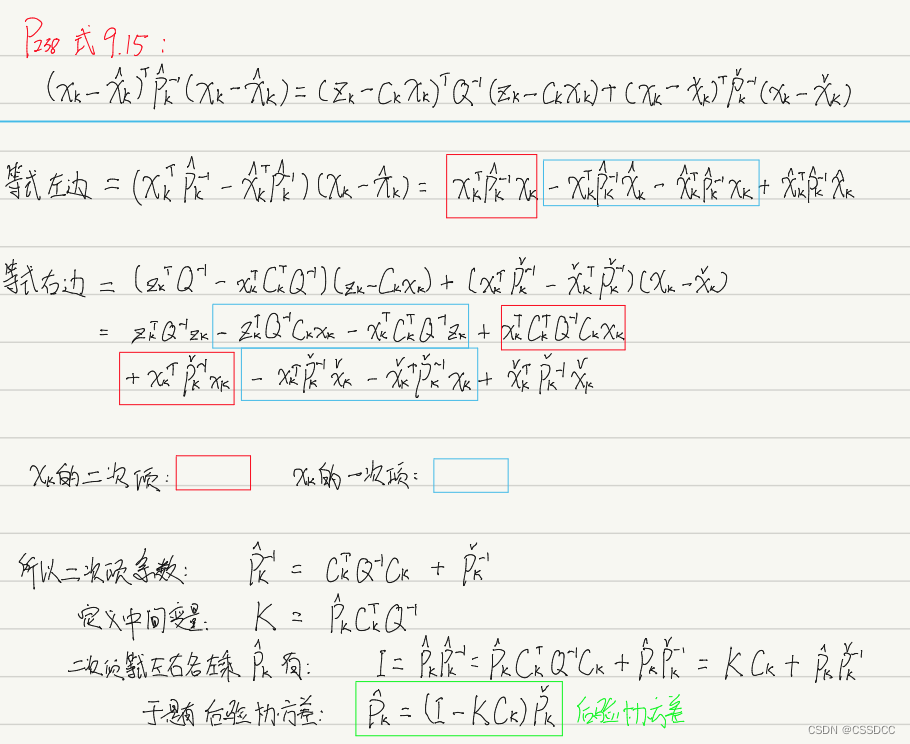 P238 式9.15:
(xₖ - x̂ₖ)ᵀ P̂ₖ⁻¹ (xₖ - x̂ₖ) = (zₖ - Cₖxₖ)ᵀ Q⁻¹ (zₖ - Cₖxₖ) + (xₖ - x̌ₖ)ᵀ P̌ₖ⁻¹ (xₖ - x̌ₖ)
等式左边 = (xₖᵀP̂ₖ⁻¹ - x̂ₖᵀP̂ₖ⁻¹)(xₖ - x̂ₖ) = xₖᵀP̂ₖ⁻¹xₖ - xₖᵀP̂ₖ⁻¹x̂ₖ - x̂ₖᵀP̂ₖ⁻¹xₖ + x̂ₖᵀP̂ₖ⁻¹x̂ₖ
等式右边 = (zₖᵀQ⁻¹ - xₖᵀCₖᵀQ⁻¹)(zₖ - Cₖxₖ) + (xₖᵀP̌ₖ⁻¹ - x̌ₖᵀP̌ₖ⁻¹)(xₖ - x̌ₖ)
= zₖᵀQ⁻¹zₖ - zₖᵀQ⁻¹Cₖxₖ - xₖᵀCₖᵀQ⁻¹zₖ + xₖᵀCₖᵀQ⁻¹Cₖxₖ
+ xₖᵀP̌ₖ⁻¹xₖ - xₖᵀP̌ₖ⁻¹x̌ₖ - x̌ₖᵀP̌ₖ⁻¹xₖ + x̌ₖᵀP̌ₖ⁻¹x̌ₖ
xₖ的二次项: xₖ的一次项:
所以二次项系数: P̂ₖ⁻¹ = CₖᵀQ⁻¹Cₖ + P̌ₖ⁻¹
定义中间变量: K = P̂ₖCₖᵀQ⁻¹
二次项等式左右各左乘 P̂ₖ 有: I = P̂ₖP̂ₖ⁻¹ = P̂ₖCₖᵀQ⁻¹Cₖ + P̂ₖP̌ₖ⁻¹ = KCₖ + P̂ₖP̌ₖ⁻¹
于是有后验协方差: P̂ₖ = (I - KCₖ)P̌ₖ 后验协方差
CSDN @CSSDCC